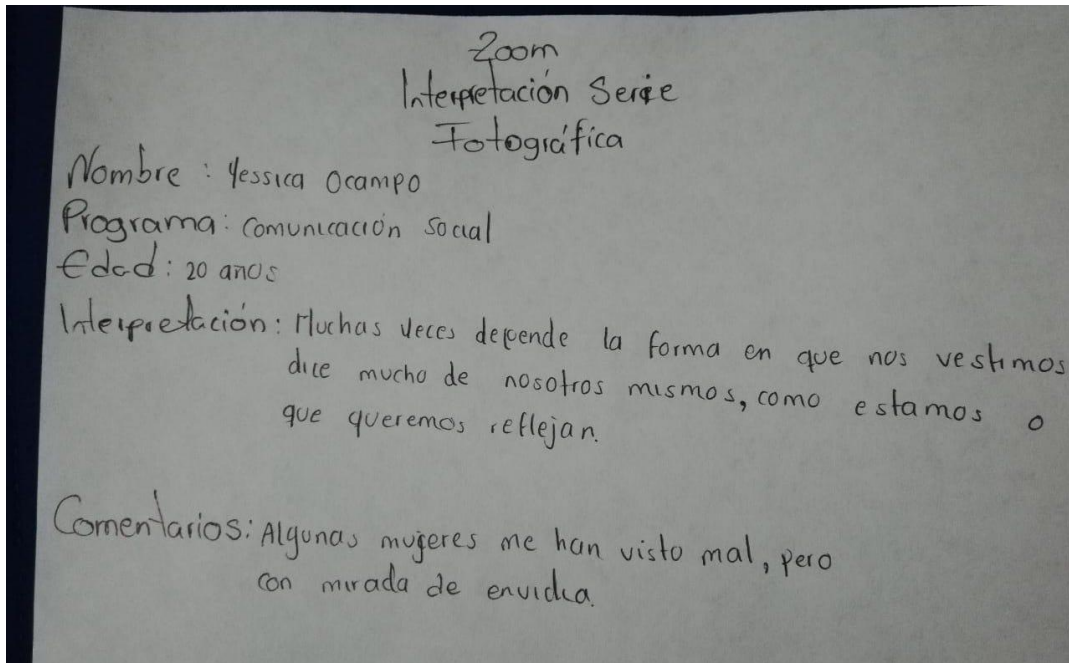 Zoom
Interpretación Serie
Fotográfica
Nombre : Yessica Ocampo
Programa: Comunicación Social
Edad: 20 anos
Interpretación: Muchas veces depende la forma en que nos vestimos
dice mucho de nosotros mismos, como estamos o
que queremos reflejan.
Comentarios: Algunas mujeres me han visto mal, pero
con mirada de envidia.